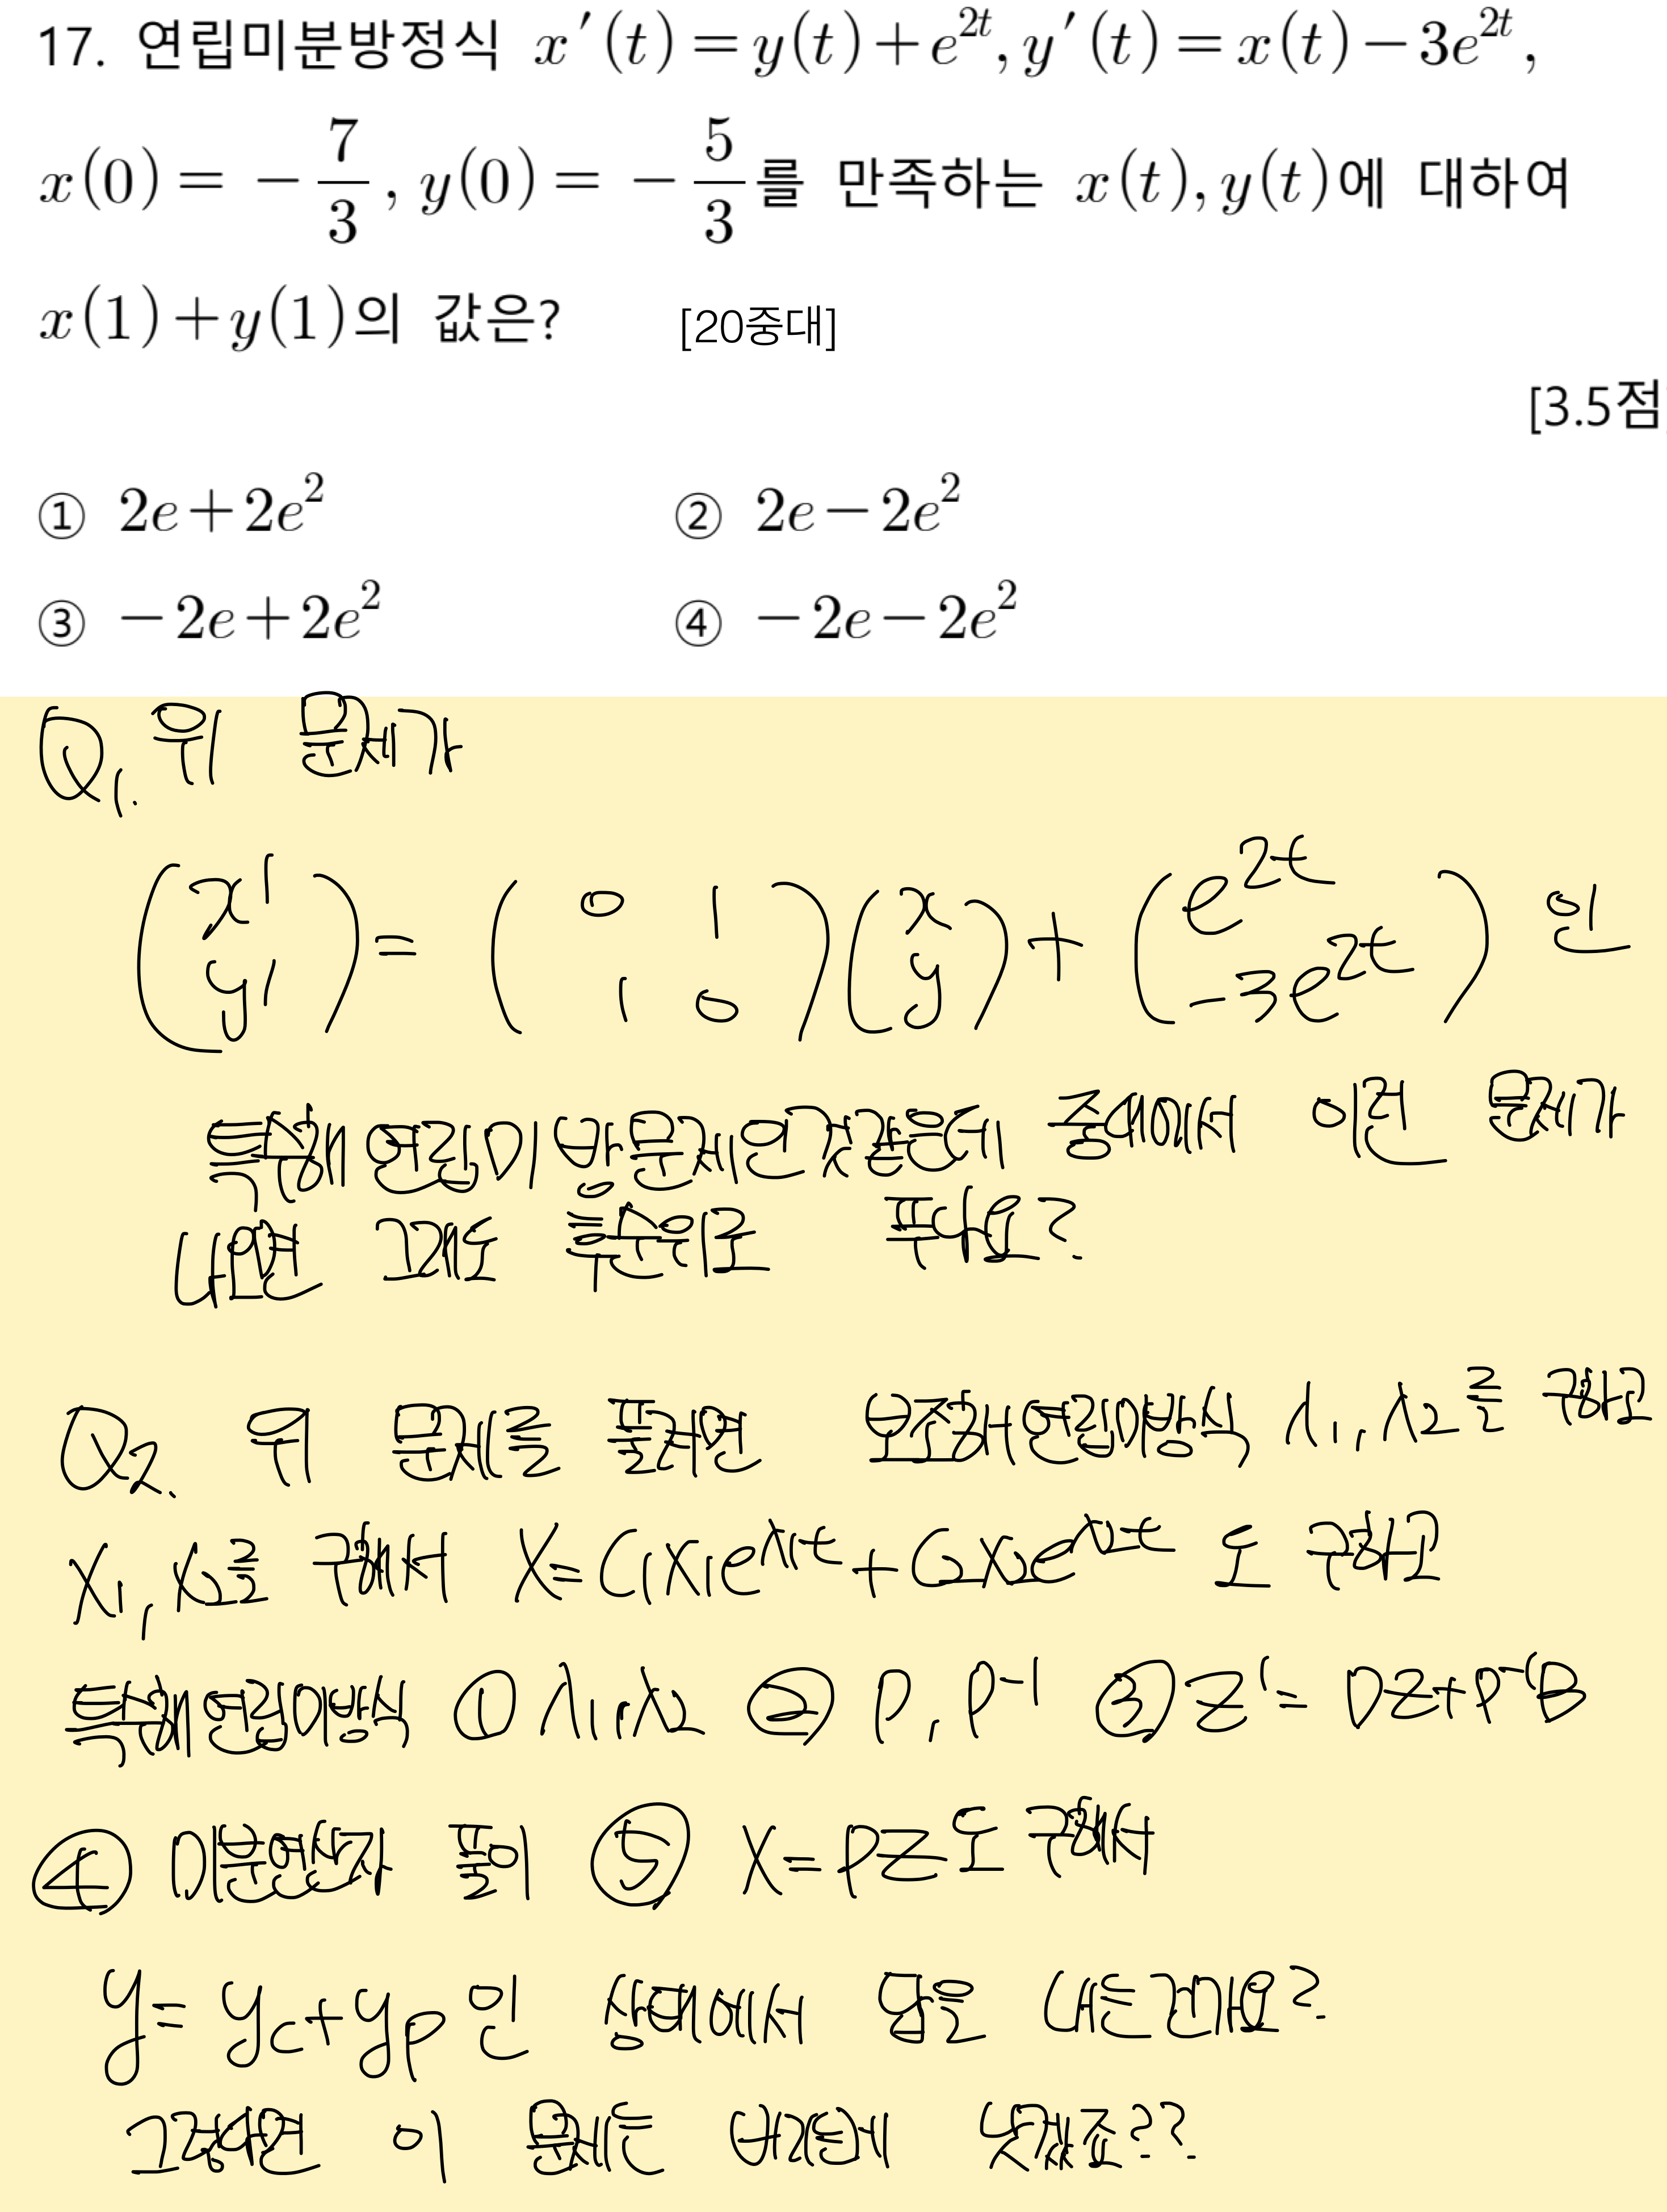 17. 연립미분방정식 x′(t)=y(t)+e^{2t}, y′(t)=x(t)−3e^{2t},
x(0)=−7/3, y(0)=−5/3를 만족하는 x(t), y(t)에 대하여
x(1)+y(1)의 값은? [20중대]
[3.5점]
① 2e+2e² ② 2e−2e²
③ −2e+2e² ④ −2e−2e²
Q1. 위 문제가
(x′ y′) = (0 1 1 0)(x y) + (e^{2t} −3e^{2t}) 인
특수해연립미방문제인것같은데 중대에서 이런 문제가
나오면 그래도 특순위로 푸나요?
Q2. 위 문제를 풀려면 보조해연립미방식 λ1, λ2를 구하고
X1, X2를 구해서 X=C1X1e^{λ1t}+C2X2e^{λ2t} 도 구하고
특수해연립미방식 ① λ1, λ2 ② P, P⁻¹ ③ Z′=DZ+P⁻¹B
④ 미분연산자 풀이 ⑤ X=PZ도 구해서
y=yc+yp인 상태에서 답을 내는건가요?
그렇다면 이 문제는 버리는게 낫겠죠??